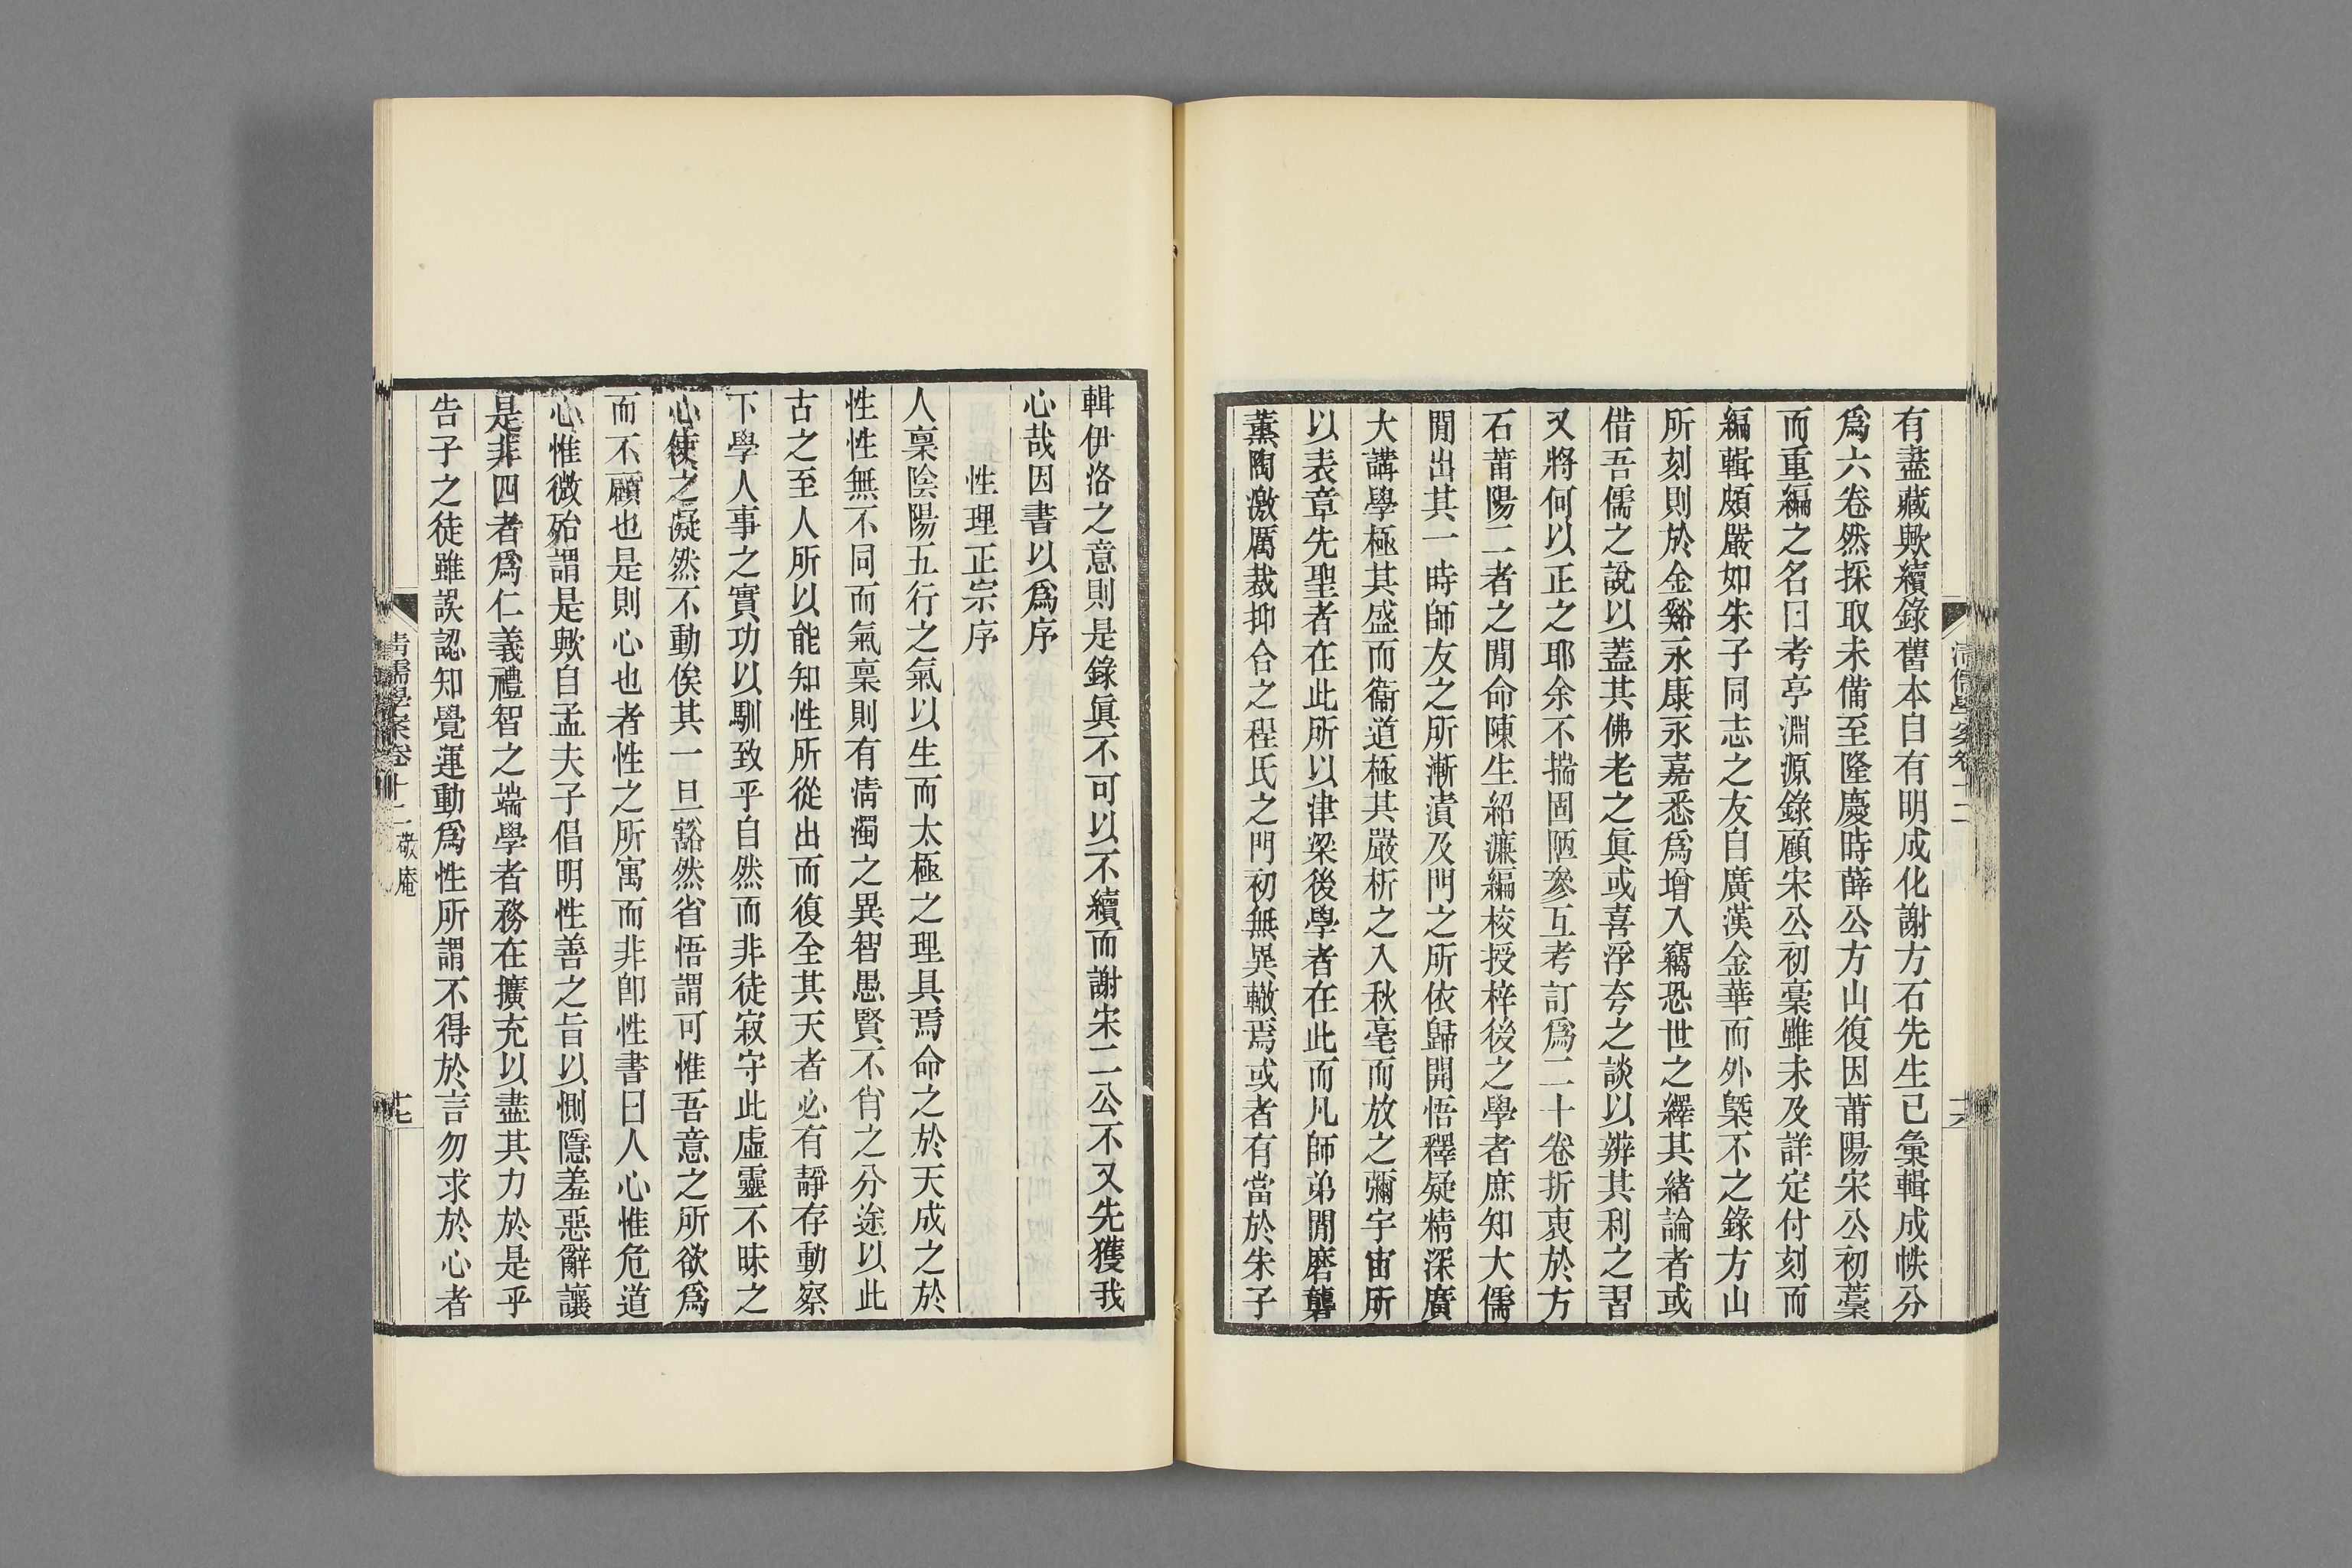 有盡藏歟續錄舊本自有明成化謝方石先生已彙輯成帙分
爲六卷然採取未備至隆慶時薛公方山復因莆陽宋公初藁
而重編之名曰考亭淵源錄顧宋公初藁雖未及詳定付刻而
編輯頗嚴如朱子同志之友自廣漢金華而外槩不之錄方山
所刻則於金谿永康永嘉悉爲增入竊恐世之繹其緒論者或
借吾儒之說以蓋其佛老之眞或喜浮夸之談以辨其利之習
又將何以正之耶余不揣固陋參互考訂爲二十卷折衷於方
石莆陽二者之閒命陳生紹濂編校授梓後之學者庶知大儒
閒出其一時師友之所漸漬及門之所依歸開悟釋疑精深廣
大講學極其盛而衞道極其嚴析之入秋毫而放之彌宇宙所
以表章先聖者在此所以津梁後學者在此而凡師弟閒磨礱
薰陶激厲裁抑合之程氏之門初無異轍焉或者有當於朱子
清儒學案卷十二
十六
輯伊洛之意則是錄眞不可以不續而謝宋二公不又先獲我
心哉因書以爲序
性理正宗序
人稟陰陽五行之氣以生而太極之理具焉命之於天成之於
性性無不同而氣稟則有淸濁之異智愚賢不肖之分途以此
古之至人所以能知性所從出而復全其天者必有靜存動察
下學人事之實功以馴致乎自然而非徒寂守此虛靈不昧之
心使之凝然不動俟其一旦豁然省悟謂可惟吾意之所欲爲
而不顧也是則心也者性之所寓而非卽性書曰人心惟危道
心惟微殆謂是歟自孟夫子倡明性善之旨以惻隱羞惡辭讓
是非四者爲仁義禮智之端學者務在擴充以盡其力於是乎
告子之徒雖誤認知覺運動爲性所謂不得於言勿求於心者
清儒學案卷十二 敬庵
十七